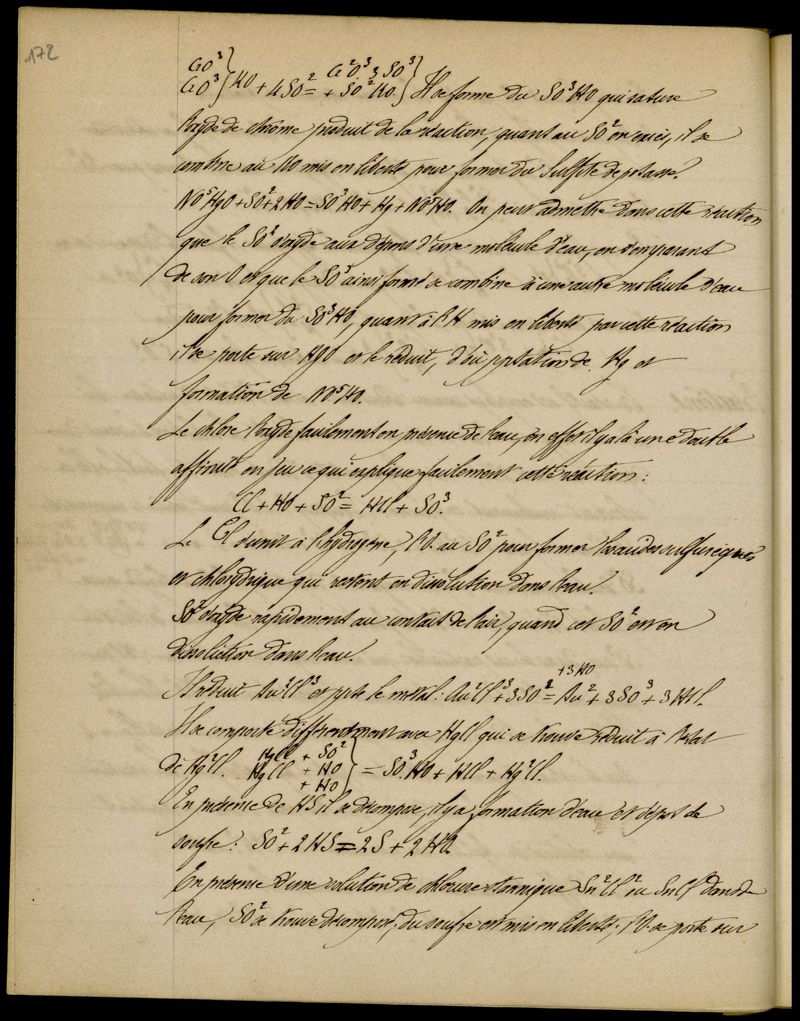 172
CrO³ } Cr²O³, 3SO³ }
CrO³ } KO + 4SO² = + SO² KO. } Il se forme du SO³HO qui sature
l'oxyde de chrome produit de la réaction, quant au SO² en excès, il se
combine au KO mis en liberté pour former du Sulfite de potasse.
NO⁵HgO + SO² + 2HO = SO³HO + Hg + NO⁵HO. On peut admettre dans cette réaction
que le SO² s'oxyde aux dépens d'une molécule d'eau, en s'emparant
de son O et que le SO³ ainsi formé se combine à une autre molécule d'eau
pour former du SO³HO, quant à l'H mis en liberté par cette réaction
il se porte sur HgO et le réduit, d'où pptation de Hg et
formation de NO⁵HO.
Le chlore l'oxyde facilement en présence de l'eau, en effet il y a là une double
affinité en jeu ce qui explique facilement cette réaction :
Cl + HO + SO² = HCl + SO³.
Le Cl s'unit à l'hydrogène, l'O au SO² pour former les acides sulfurique
et chlorydrique qui restent en dissolution dans l'eau.
SO² s'oxyde rapidement au contact de l'air, quand cet SO² est en
dissolution dans l'eau.
+3HO
Il réduit Au²Cl³ et ppte le métal : Au²Cl³ + 3SO² = Au² + 3SO³ + 3HCl.
Il se comporte différemment avec HgCl qui se trouve réduit à l'état
de Hg²Cl. HgCl + SO² }
HgCl + HO } = SO³.HO + HCl + Hg²Cl.
+ HO }
En présence de HS il se décompose, il y a formation d'eau et dépôt de
soufre : SO² + 2HS = 2S + 2HO.
En présence d'une solution de chlorure stannique Sn²Cl² ou SnCl dans
l'eau, SO² se trouve décomposé, du soufre est mis en liberté, l'O se porte sur